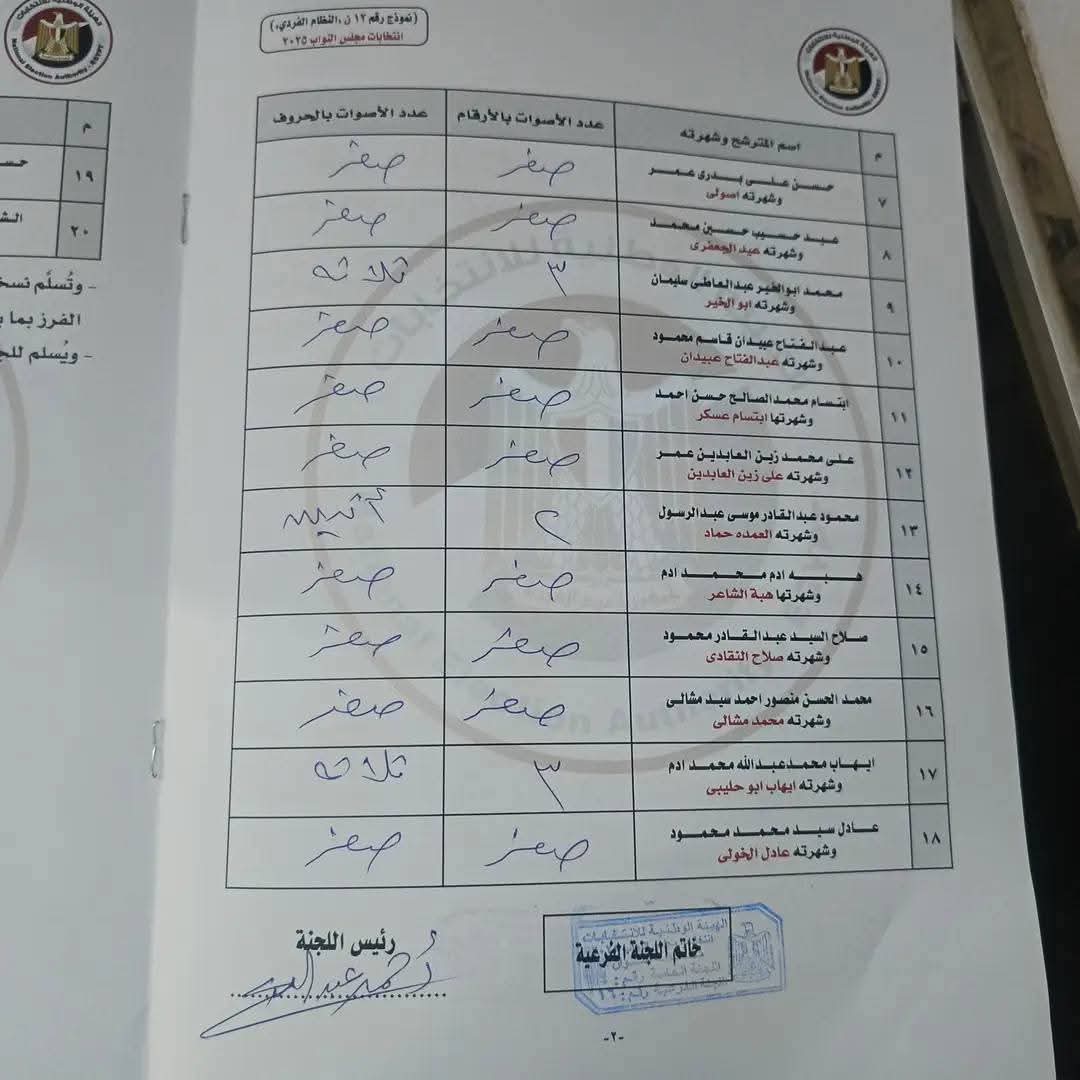 (نموذج رقم ١٢ ن، النظام الفردي،)
انتخابات مجلس النواب ٢٠٢٥
الهيئة الوطنية للانتخابات
National Election Authority - EGYPT
م
اسم المترشح وشهرته
عدد الأصوات بالأرقام
عدد الأصوات بالحروف
٧ حسن على بدرى عمر صفر صفر
وشهرته اصولى
٨ عيد حسيب حسين محمد صفر صفر
وشهرته عيد الجعفرى
٩ محمد ابوالخير عبدالعاطى سليمان ٣ ثلاثه
وشهرته ابو الخير
١٠ عبدالفتاح عبيدان قاسم محمود صفر صفر
وشهرته عبدالفتاح عبيدان
١١ ابتسام محمدالصالح حسن احمد صفر صفر
وشهرتها ابتسام عسكر
١٢ على محمد زين العابدين عمر صفر صفر
وشهرته على زين العابدين
١٣ محمود عبدالقادر موسى عبدالرسول ٢ أثنين
وشهرته العمده حماد
١٤ هبه ادم محمد ادم صفر صفر
وشهرتها هبة الشاعر
١٥ صلاح السيد عبدالقادر محمود صفر صفر
وشهرته صلاح النقادى
١٦ محمد الحسن منصور احمد سيد مشالى صفر صفر
وشهرته محمد مشالى
١٧ ايهاب محمدعبدالله محمد ادم ٣ ثلاثه
وشهرته ايهاب ابو حليبى
١٨ عادل سيد محمد محمود صفر صفر
وشهرته عادل الخولى
خاتم اللجنة الفرعية
الهيئة الوطنية للانتخابات
رئيس اللجنة
-٢-
National Election Authority - EGYPT
م
١٩ حس
٢٠ الش
- وتُسلَّم نسخ
الفرز بما
- ويُسلم للج